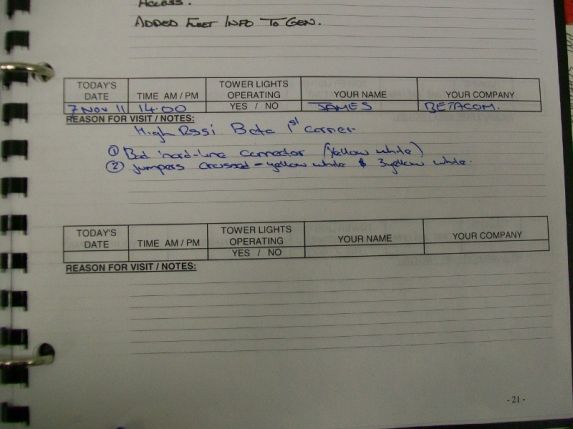 Access.
ADDED FUEL INFO TO GEN.
TODAY'S DATE TIME AM / PM TOWER LIGHTS OPERATING YOUR NAME YOUR COMPANY
7 NOV 11 14:00 YES / NO JAMES BETACOM.
REASON FOR VISIT / NOTES:
High Rssi Beta 1st Carrier
① Bad hard-line connector (yellow white)
② jumpers crossed - yellow white & 3yellow white.
TODAY'S DATE TIME AM / PM TOWER LIGHTS OPERATING YOUR NAME YOUR COMPANY
YES / NO
REASON FOR VISIT / NOTES:
- 21 -